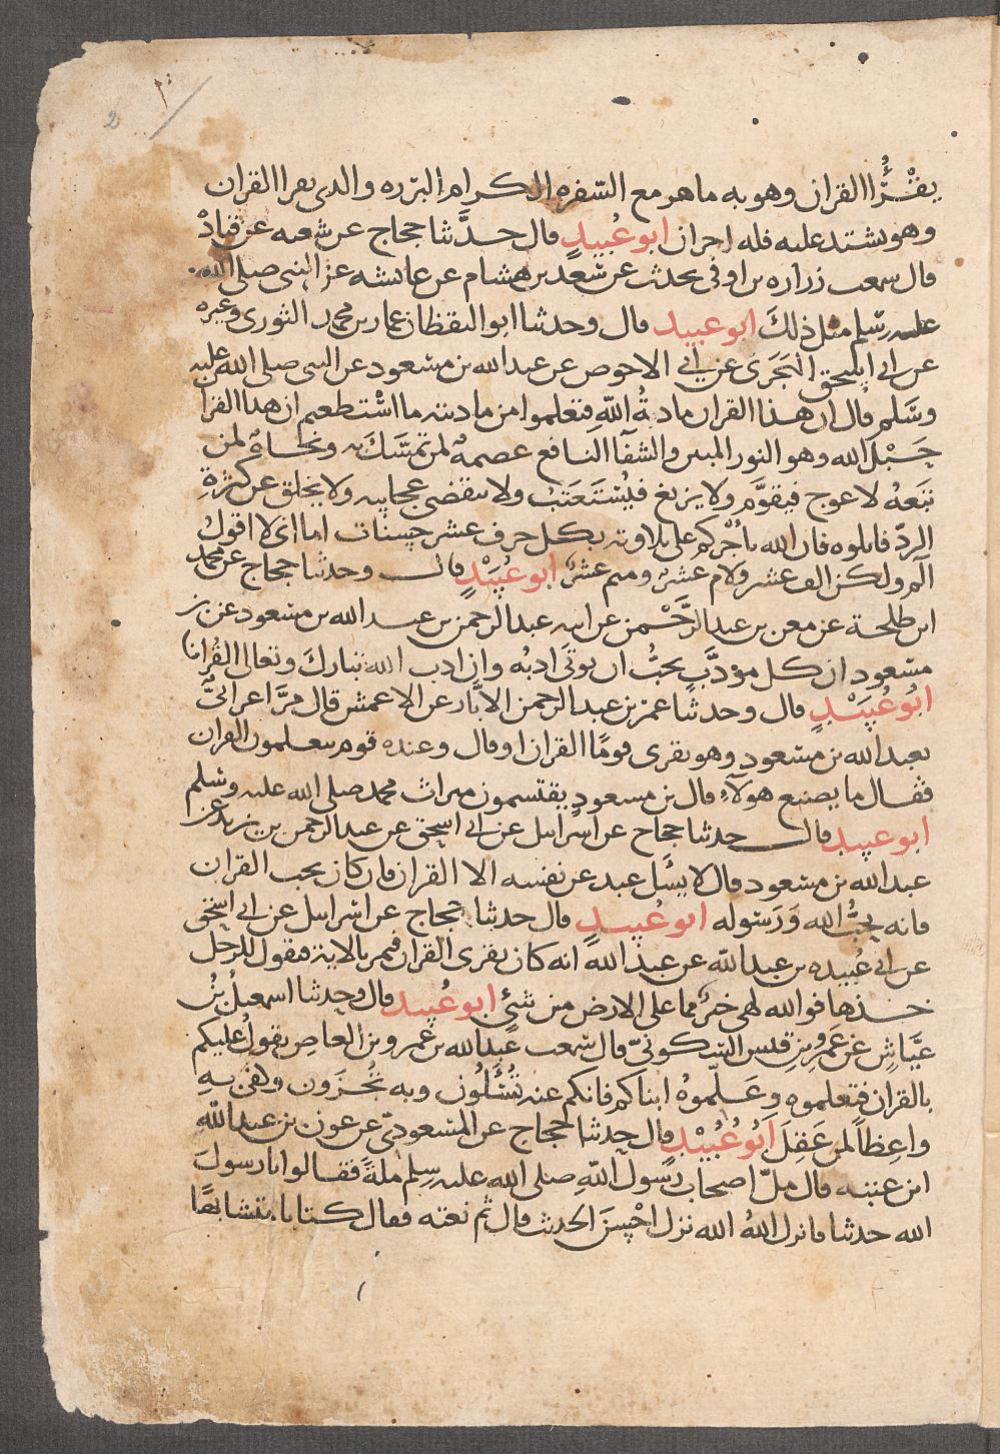 يقرأ القران وهو به ماهر مع السفره الكرام البرره والذي يقرا القران
وهو يشتد عليه فله اجران ابو عبيد قال حدثنا حجاج عن شعبه عن قتادة
قال سمعت زراره بن اوفى يحدث عن سعد بن هشام عن عائشه عن النبي صلى الله
عليه وسلم مثل ذلك ابو عبيد قال وحدثنا ابو اليقظان عمار بن محمد الثوري وغيره
عن ابي اسحق الهجري عن ابي الاحوص عن عبد الله بن مسعود عن النبي صلى الله عليه
وسلم قال ان هذا القران مادبة الله فتعلموا من مادبته ما استطعتم ان هذا القران
حبل الله وهو النور المبين والشفآ النافع عصمة لمن تمسك به ونجاة لمن
تبعه لا يعوج فيقوم ولا يزيغ فيستعتب ولا تنقضي عجايبه ولا يخلق عن كثرة
الرد فاتلوه فان الله ياجركم على تلاوته بكل حرف عشر حسنات اما اني لا اقول
الم ولكن الف عشر ولام عشر وميم عشر ابو عبيد قال وحدثنا حجاج عن محمد
ابن طلحة عن معن بن عبد الرحمن عن ابيه عبد الرحمن بن عبد الله بن مسعود عن بن
مسعود ان كل مؤدب يحب ان يوتى ادبه وان ادب الله تبارك وتعالى القران
ابو عبيد قال وحدثنا عمر بن عبد الرحمن الابار عن الاعمش قال مر اعرابي
بعبد الله بن مسعود وهو يقرى قوما القران او قال وعنده قوم يتعلمون القران
فقال ما يصنع هولاء قال بن مسعود يقتسمون ميراث محمد صلى الله عليه وسلم
ابو عبيد قال حدثنا حجاج عن اسرايل عن ابي اسحق عن عبد الرحمن بن يزيد عن
عبد الله بن مسعود قال لا يسئل عبد عن نفسه الا القران فان كان يحب القران
فانه يحب الله ورسوله ابو عبيد قال حدثنا حجاج عن اسرايل عن ابي اسحق
عن ابي عبيده بن عبد الله عن عبد الله انه كان يقرى القران فيمر بالاية فيقول للرجل
خذها فوالله لهي خير مما على الارض من شئ ابو عبيد قال وحدثنا اسمعيل بن
عياش عن عمرو بن قيس السكوني قال سمعت عبد الله بن عمرو بن العاص يقول عليكم
بالقران فتعلموه وعلموه ابناكم فانكم عنه تسئلون وبه تجزون وكفى به
واعظا لمن عقل ابو عبيد قال حدثنا حجاج عن المسعودي عن عون بن عبد الله
ابن عتبه قال مل اصحاب رسول الله صلى الله عليه وسلم ملة فقالوا يا رسول
الله حدثنا فانزل الله الله نزل احسن الحديث قال ثم نعته فقال كتابا متشابها